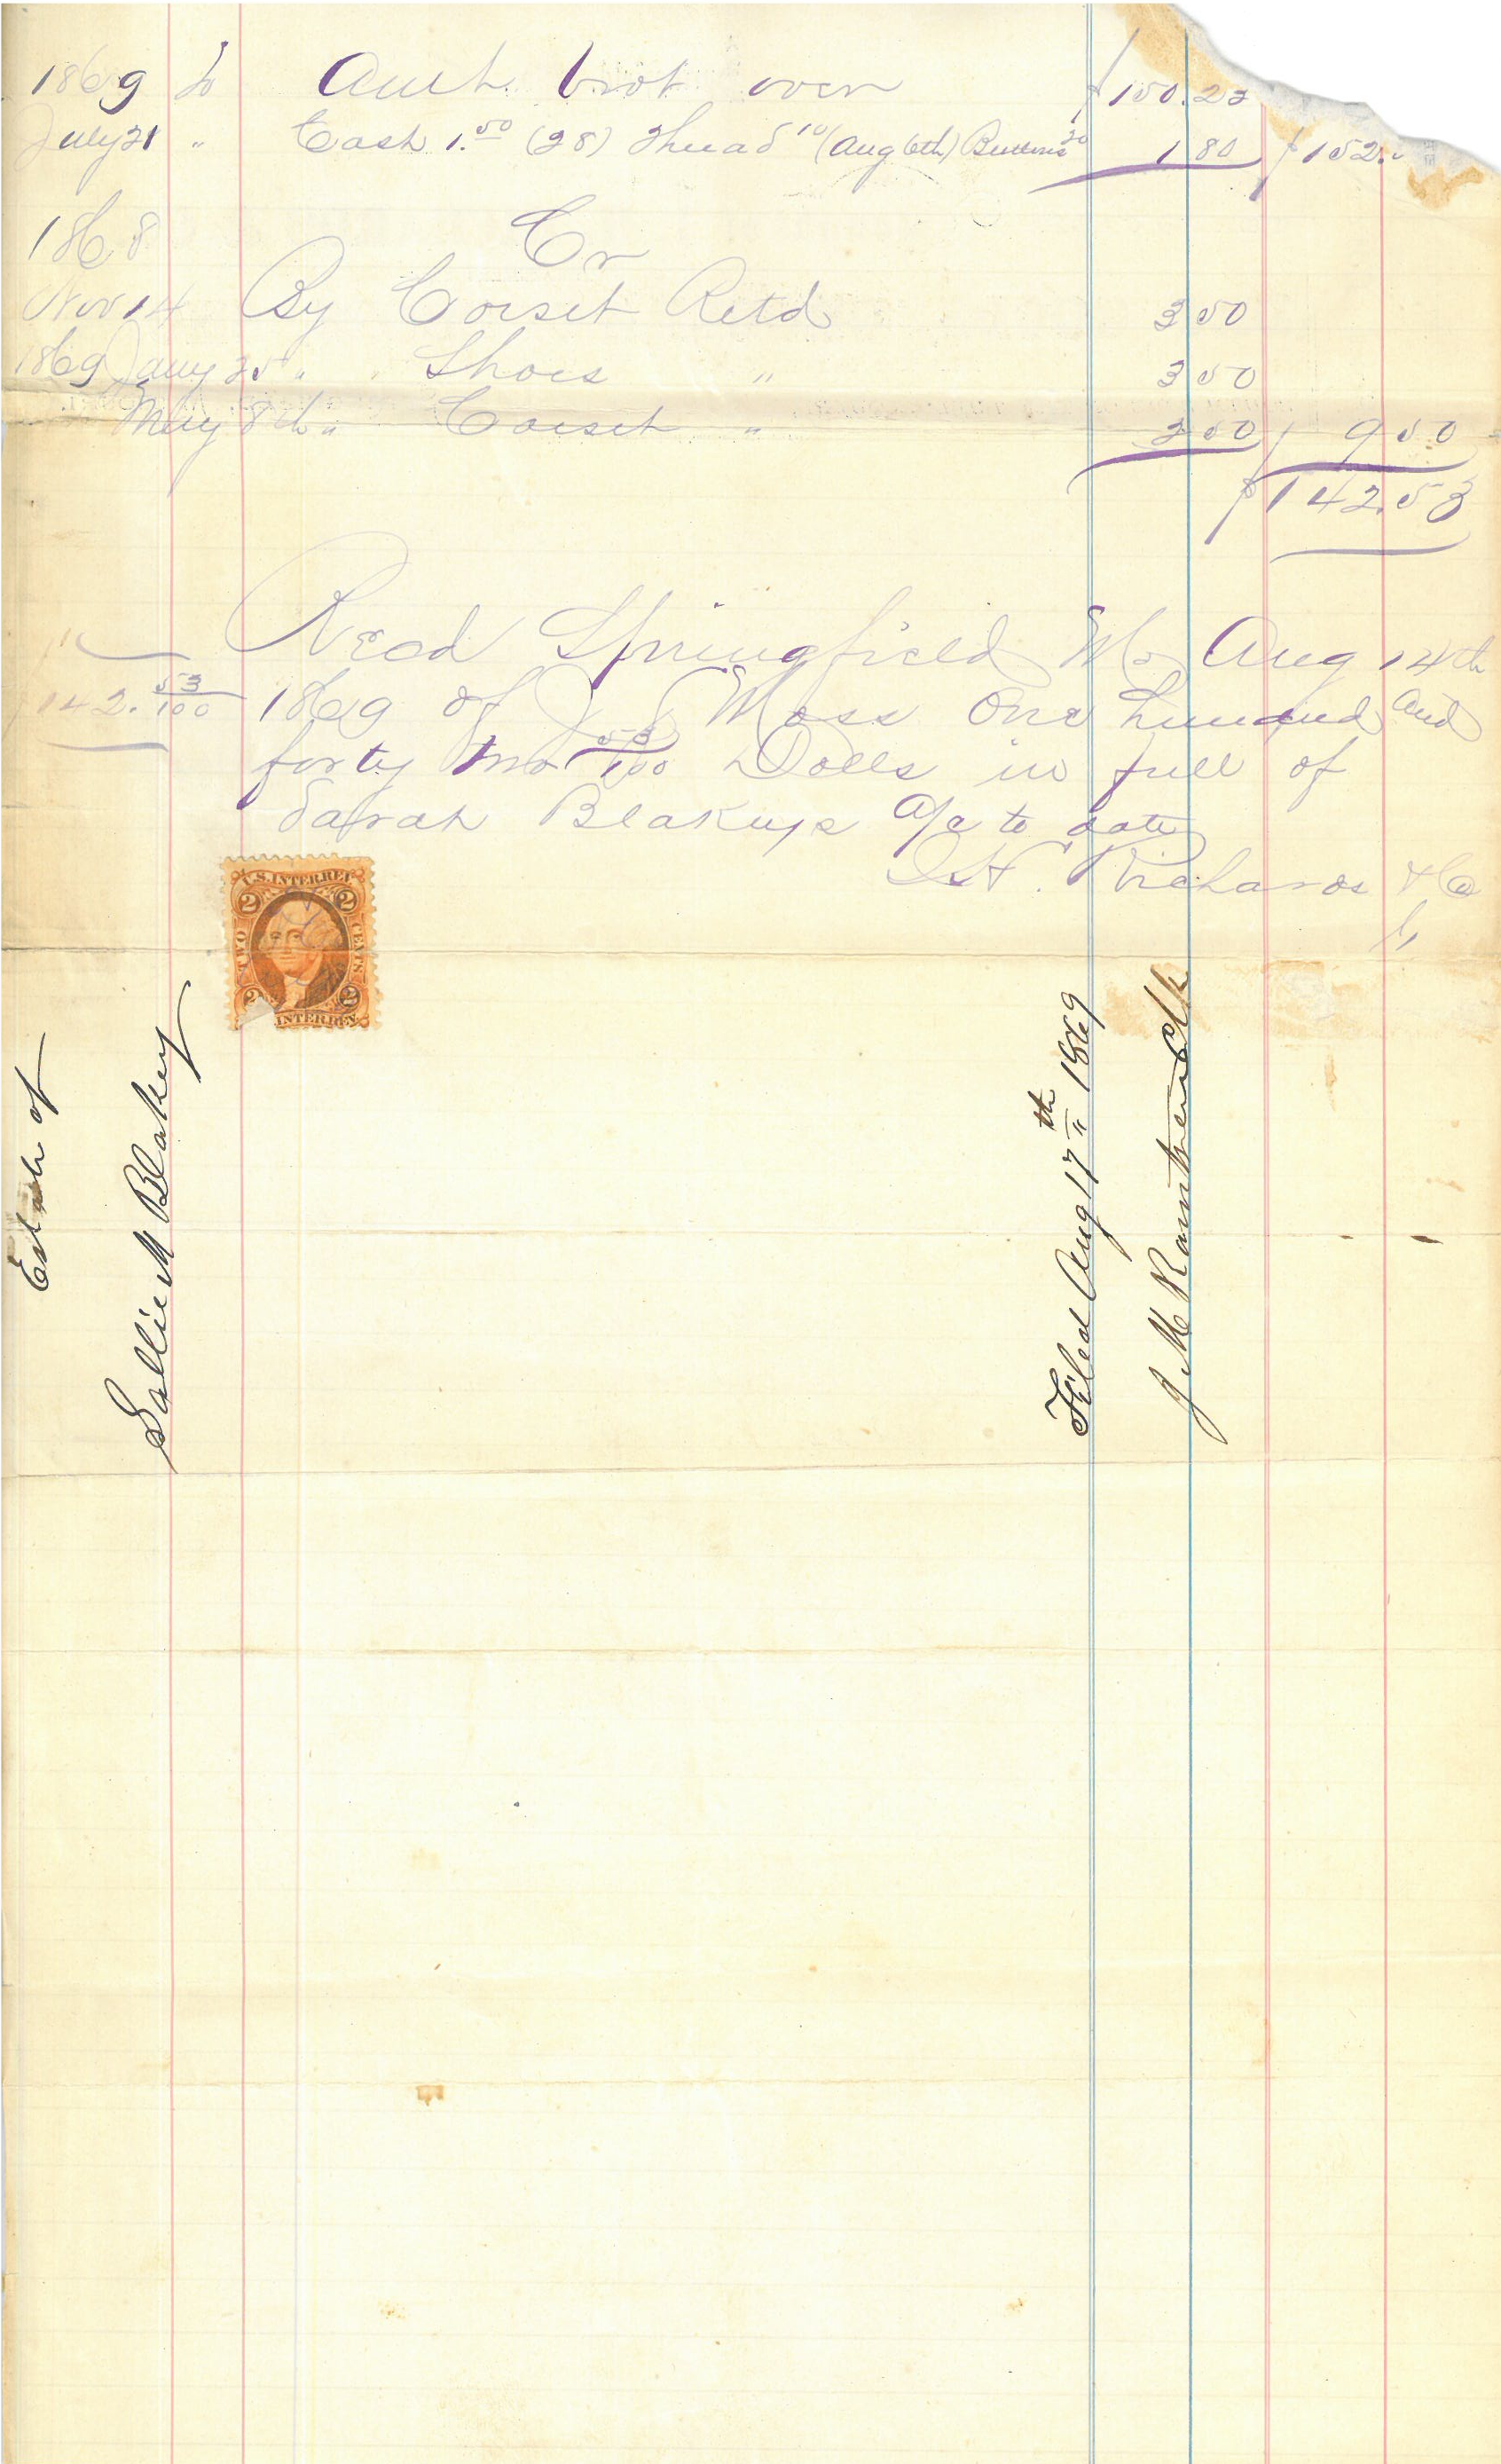 1869 To Amt. brot over $150.23
July 21 " Cash 1.50 (28) Thread 10 (Aug 6th) Buttons 20 1 80 $152.
1868 Cr
Nov 14 By Corset Retd 3 50
1869 Jany 25 " " Shoes " 3 00
May 8th " Corset " 9 50
$142.53
Recd Springfield Mo Aug 14th
$142.53/100 1869 of J S Moss One hundred and
forty two 53/100 Dolls in full of
Sarah Blakeys a/c to date
Richards & Co
U.S. INTER REV
2 2
TWO CENTS
2 2
INTER REV
Estate of
Sallie M Blakey
Filed Aug 17th 1869
J M Clk